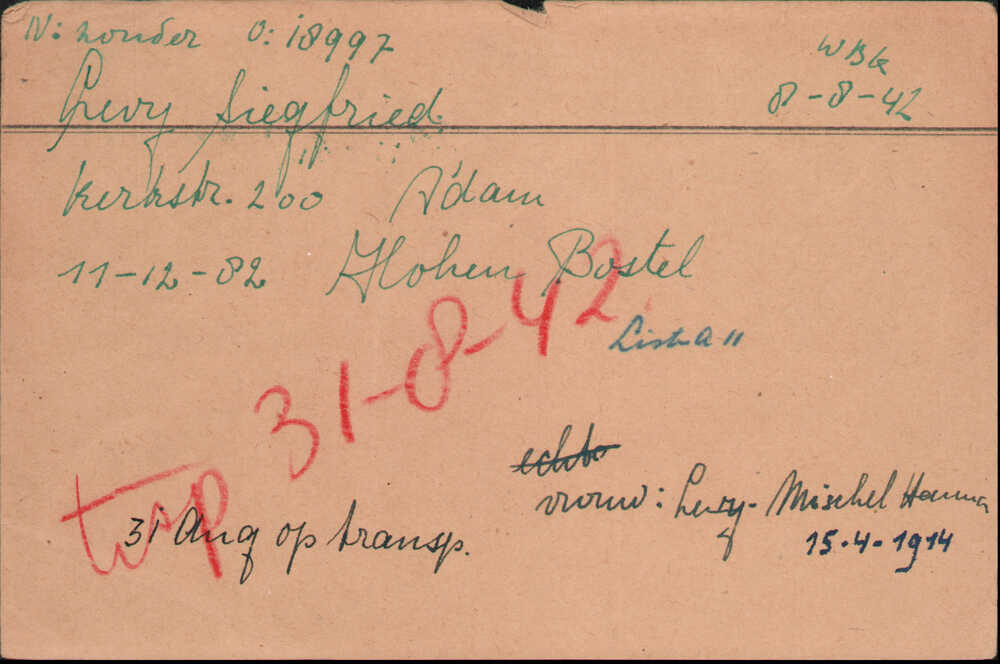 N: zonder O: 18997
WBK
8-8-42
Levy Siegfried
Kerkstr. 200 A'dam
11-12-82 Hohen Bostel
31-8-42
trsp
echtg
vrouw: Levy-Mischel Hanna
15-4-1914
31 Aug op transp.